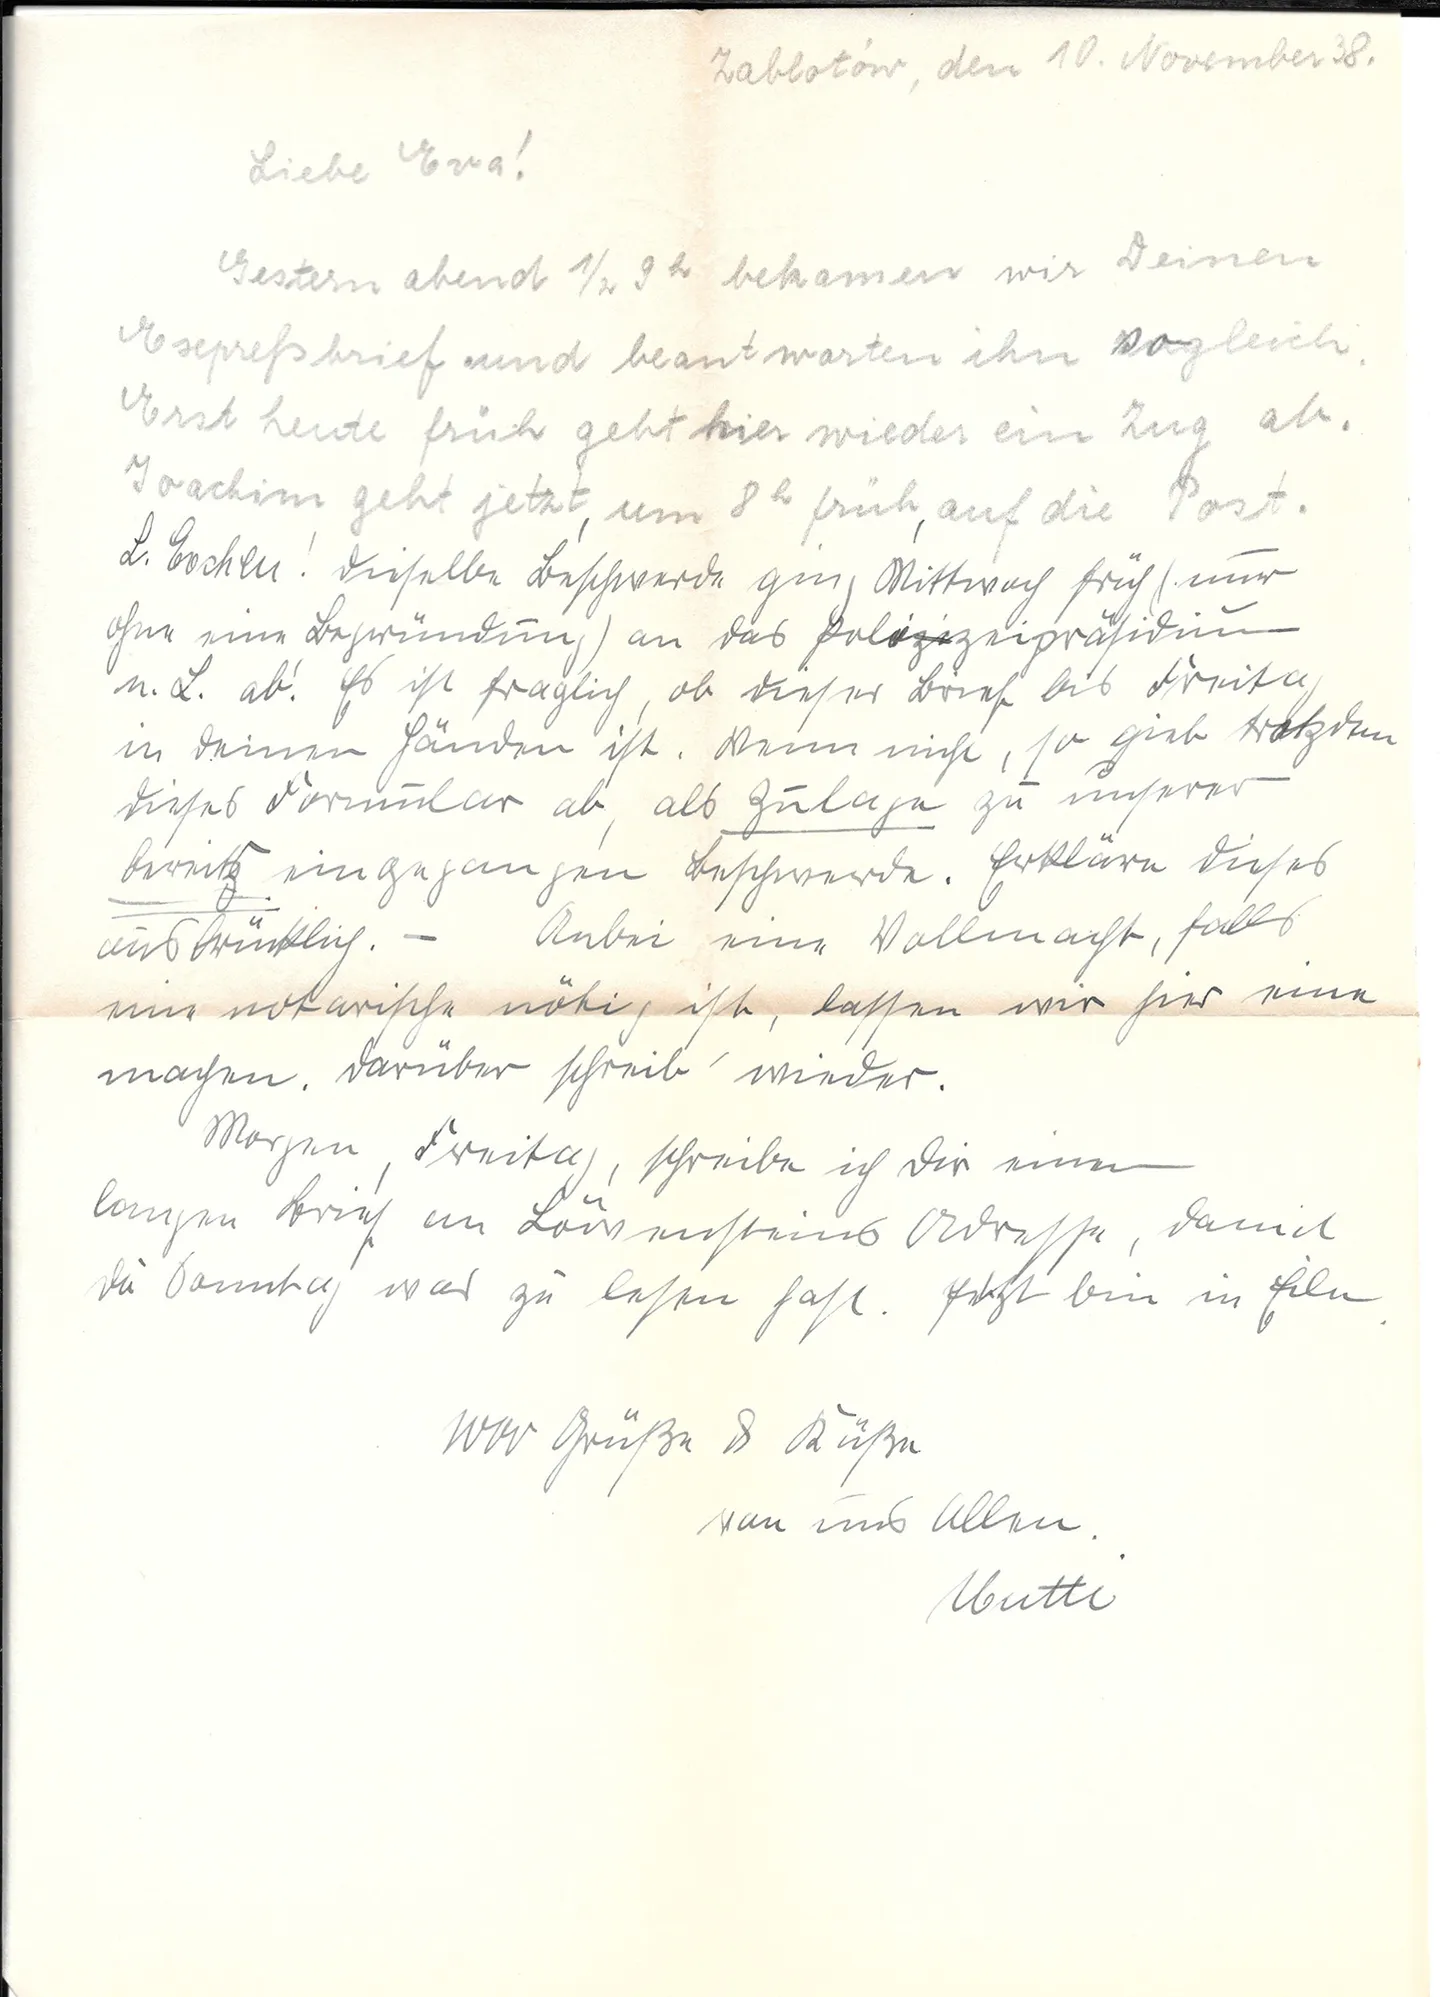 Zablotów, den 10. November 38.
Liebe Eva!
Gestern abend 1/2 9 h bekamen wir Deinen
Expreßbrief und beantworten ihn sogleich.
Erst heute früh geht hier wieder ein Zug ab.
Joachim geht jetzt, um 8 h früh, auf die Post.
L. Evchen! Dieselbe Beschwerde ging Mittwoch früh (nur
ohne eine Begründung) an das Polizeipräsidium
n. L. ab. Es ist fraglich, ob dieser Brief bis Freitag
in deinen Händen ist. Wenn nicht, so gieb trotzdem
dieses Formular ab, als Zulage zu unserer
bereits eingegangen Beschwerde. Erkläre dieses
ausdrücklich. – Anbei eine Vollmacht, falls
eine notarische nötig ist, lassen wir hier eine
machen. Darüber schreib' wieder.
Morgen, Freitag, schreibe ich Dir einen
langen Brief an Löwensteins Adresse, damit
Du Sonntag was zu lesen hast. Jetzt bin in Eile.
Grüße & Küße
von uns Allen.
Mutti